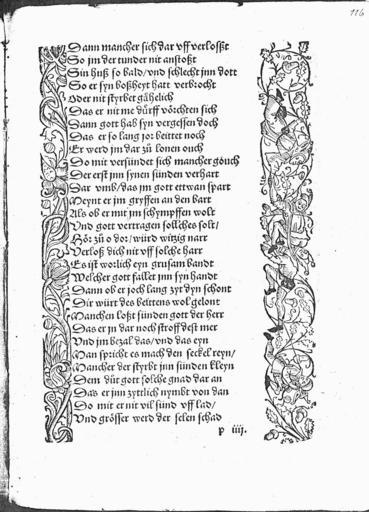 116
Dann mancher sich dar vff verloßt
So jm der tunder nit anstoßt
Sin huß so bald / vnd schlecht jnn dott
So er syn boßheyt hatt verbrocht
Oder nit styrbet gähelich
Das er nit me dürff vörchten sich
Dann gott hab syn vergessen doch
Das er so lang jor beittet noch
Er werd jm dar zů lonen ouch
Do mit versündet sich mancher gouch
Der erst jnn synen sünden verhart
Dar vmb / das jm gott ettwan spart
Meynt er jm gryffen an den bart
Als ob er mit jm schympffen wolt
Vnd gott vertragen sollches solt /
Hör zů o dor / würd witzig narr
Verloß dich nit vff solche harr
Es ist worlich eyn grusam bandt
Welcher gott fallet jnn syn handt
Dann ob er joch lang zyt dyn schont
Dir würt des beittens wol gelont
Manchen loßt sünden gott der herr
Das er jn dar noch stroff dest mer
Vnd jm bezal das / vnd das eyn
Man spricht es mach den seckel reyn /
Mancher der styrbt jnn sünden kleyn
Dem důt gott solche gnad dar an
Das er jnn zyttlich nymbt von dan
Do mit er nit vil sünd vff lad /
Vnd grösser werd der selen schad
p iiij.